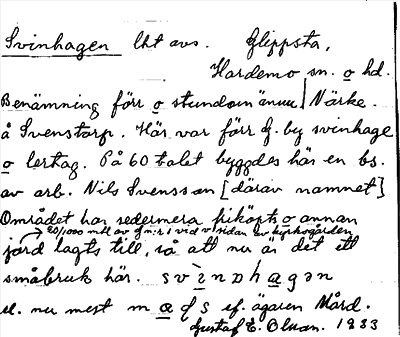 Svinhagen lht avs. Glippsta,
Hardemo sn. o hd.
Benämning förr o stundom ännu Närke.
å Svenstorp. Här var förr f. by svinhage
o lertag. På 60 talet byggdes här en bs.
av arb. Nils Svensson [därav namnet]
Området har sedermera friköpts o annan
20/1000 mtl av fr n:r 1 vid v sidan av kyrkogården
jord lagts till, så att nu är det ett
småbruk här. svinəhagən
el. nu mest
ef. ägaren Mård.
Gustaf E. Olsson. 1933